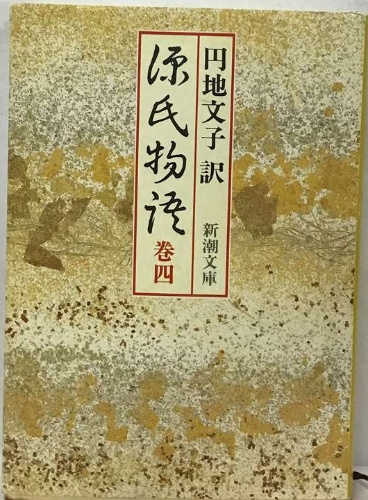 円地文子 訳
源氏物語
巻四
新潮文庫